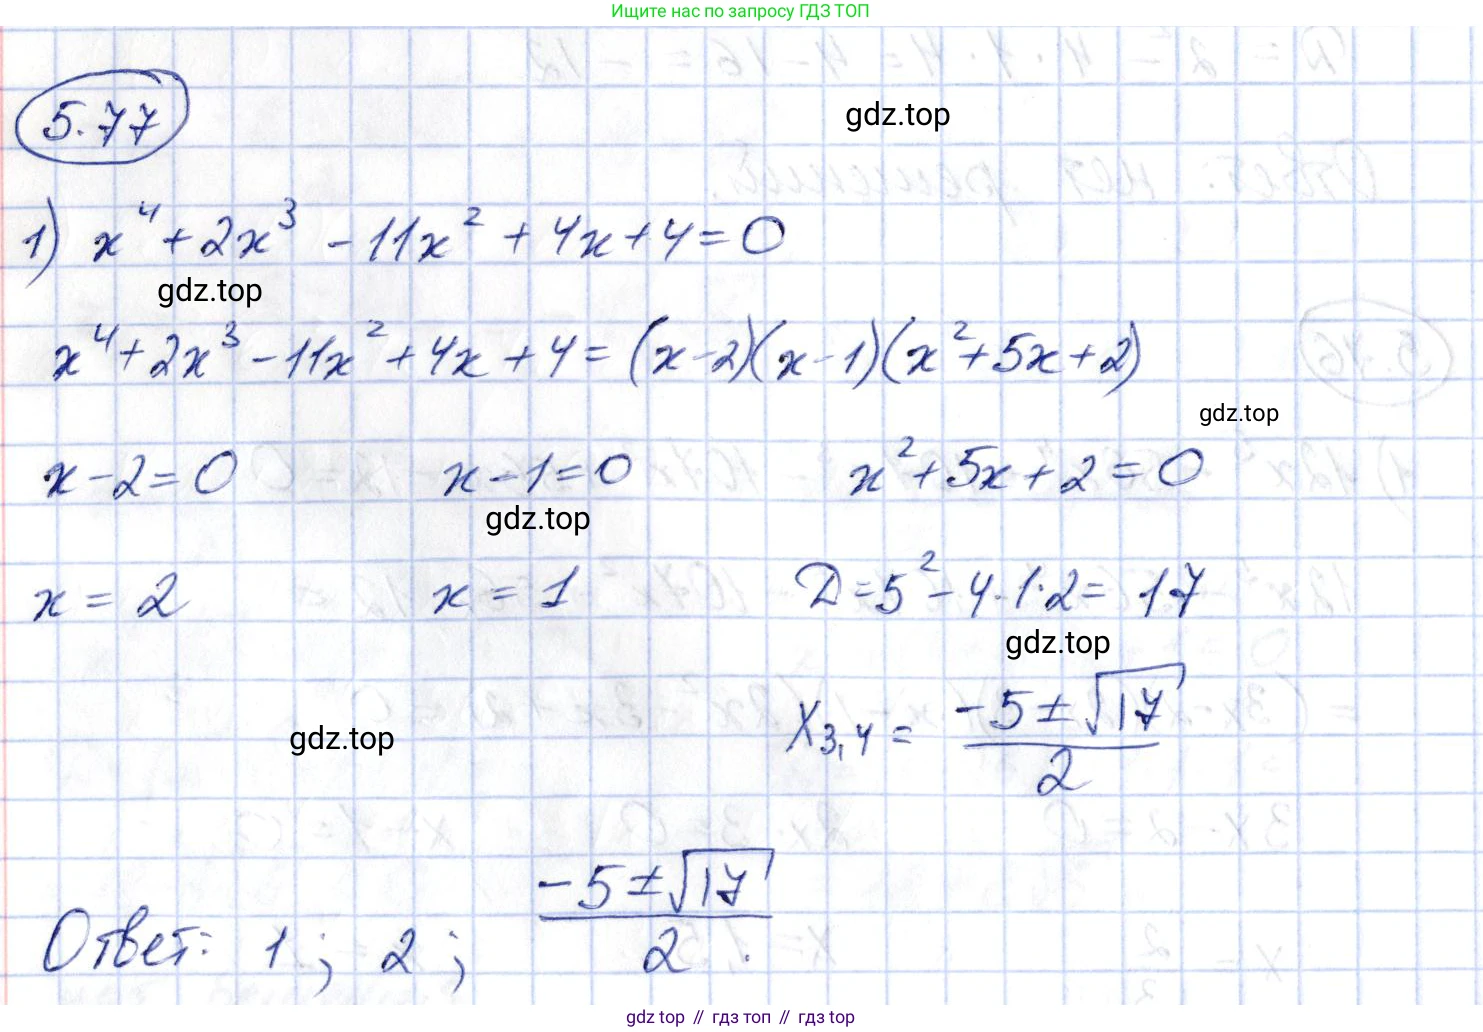 Ищите нас по запросу ГДЗ ТОП
5.77
gdz.top
1) x⁴ + 2x³ - 11x² + 4x + 4 = 0
gdz.top
x⁴ + 2x³ - 11x² + 4x + 4 = (x-2)(x-1)(x² + 5x + 2)
gdz.top
x - 2 = 0 x - 1 = 0 x² + 5x + 2 = 0
gdz.top
x = 2 x = 1 D = 5² - 4·1·2 = 17
gdz.top
gdz.top
X₃,₄ = (-5 ± √17)/2
Ответ: 1; 2; (-5 ± √17)/2.
gdz top // гдз топ // гдз top